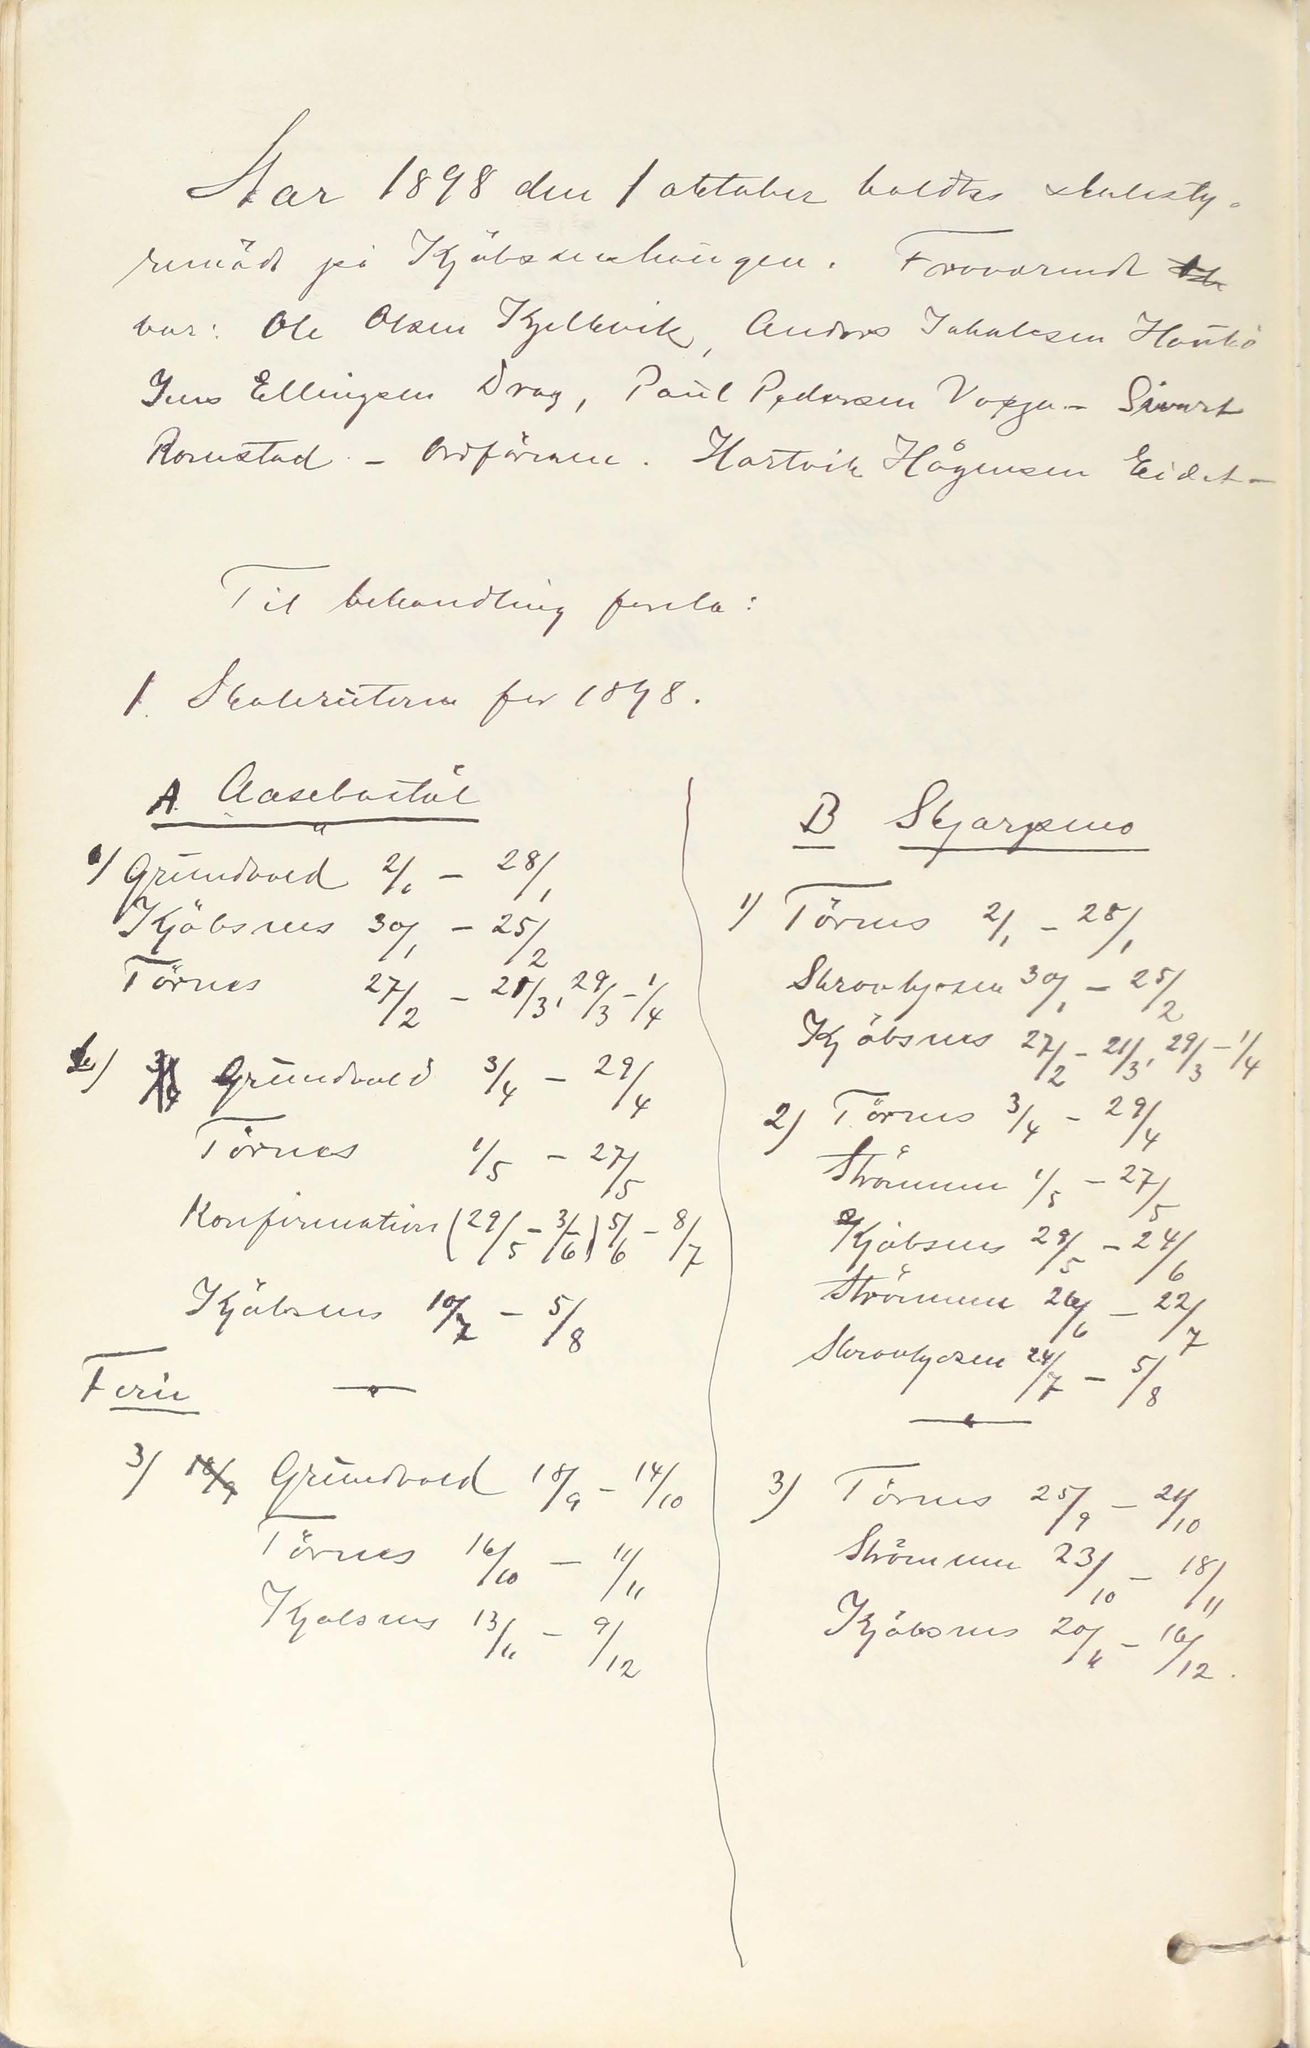 Aar 1898 den 1 oktober holdtes skolesty-
remöde på Kjöbsneshaugen. Froværende
var: Ole Olsen Kjellevik, Anders Jakobsen
Jens Ellingsen Drag, Paul Pedersen Voxen - Sivert
Romstad - Ordförann. Hartvik Hågensen Eidet -
Til behandling forela:
1. Skoleruterne for 1898.
A. Aasebostöl
1) Grundvold 2/1 - 28/1
Kjöbsnes 30/1 - 25/2
Törnes 27/2 - 21/3, 29/3 - 1/4
2) Grundvold 3/4 - 29/4
Törnes 1/5 - 27/5
Konfirmation (29/5 - 3/6) 5/6 - 8/7
Kjöbsnes 10/7 - 5/8
Ferie
3) Grundvold 18/9 - 14/10
Törnes 16/10 - 11/11
Kjöbsnes 13/11 - 9/12
B Skjarpmo
1) Törnes 2/1 - 28/1
30/1 - 25/2
Kjöbsnes 27/2 - 21/3, 29/3 - 1/4
2) Törnes 3/4 - 29/4
Strömmen 1/5 - 27/5
Kjöbsnes 29/5 - 24/6
Strömmen 26/6 - 22/7
24/7 - 5/8
3) Törnes 25/9 - 21/10
Strömmen 23/10 - 18/11
Kjöbsnes 20/11 - 16/12.